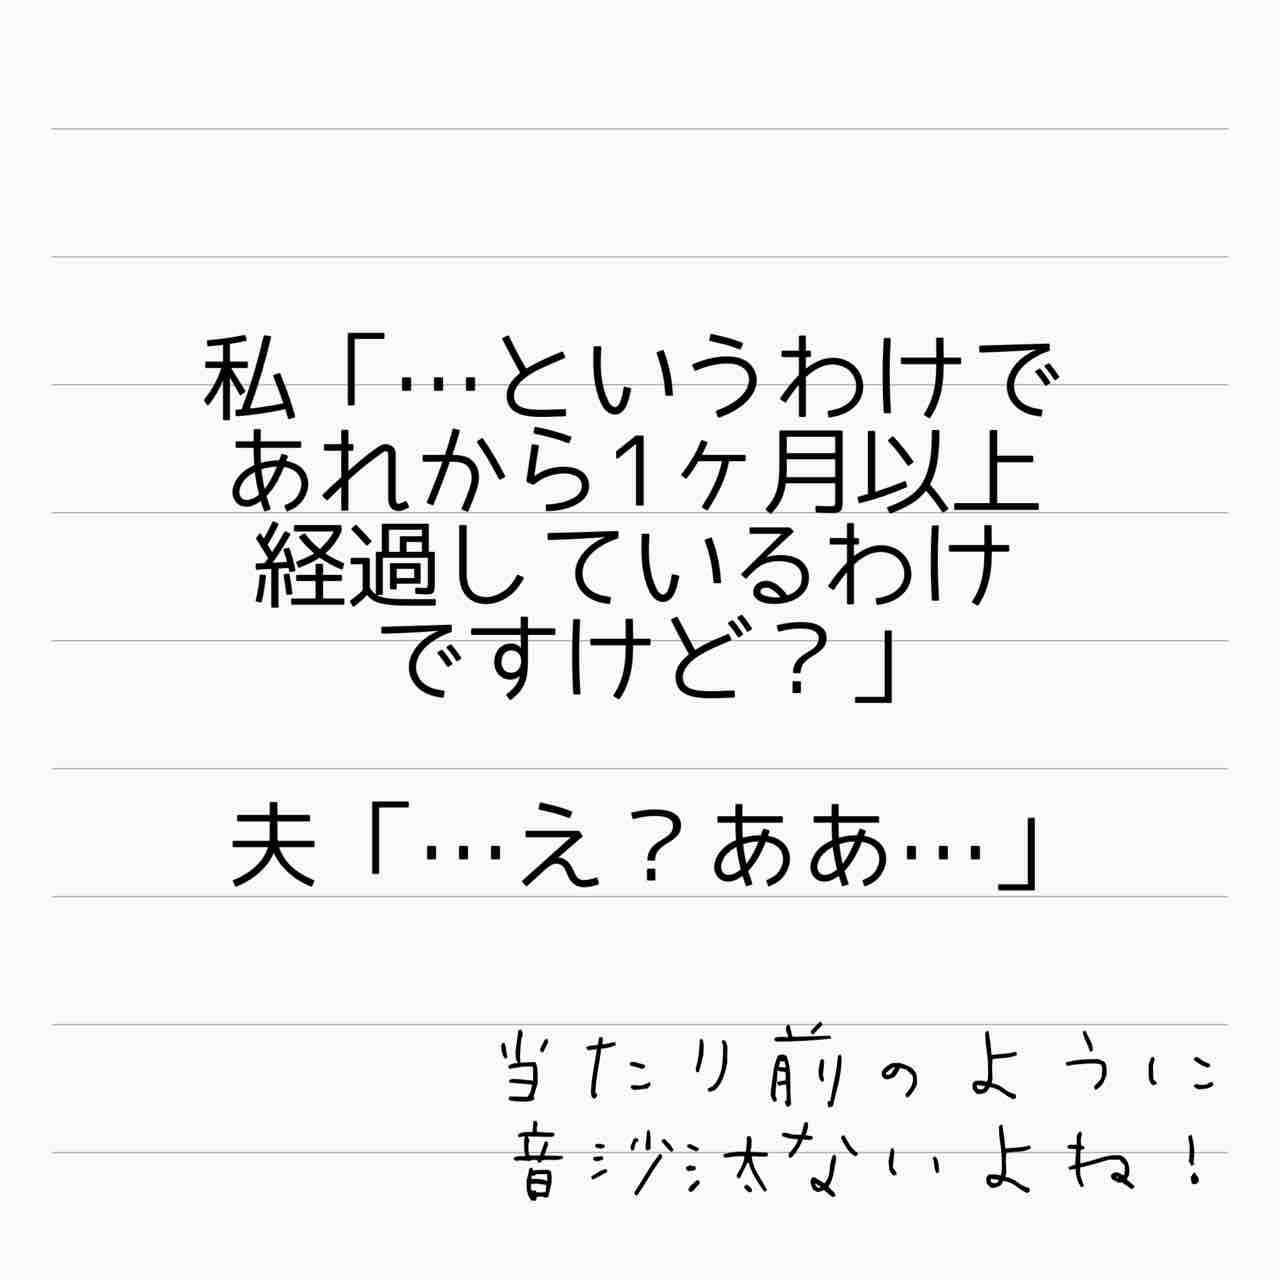 私「…というわけで
あれから1ヶ月以上
経過しているわけ
ですけど？」
夫「…え？ああ…」
当たり前のように
音沙汰ないよね！